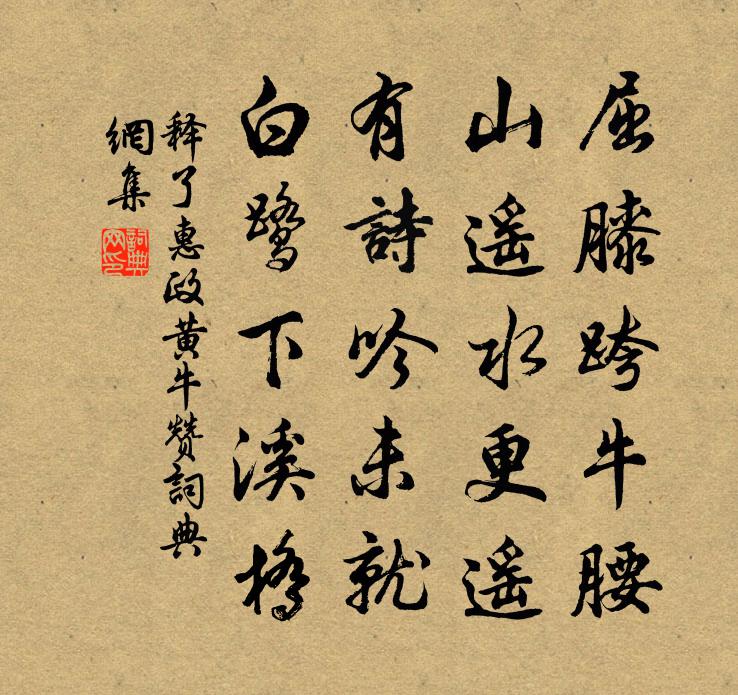 屈膝跨牛腰
山遥水更遥
有詩吟未就
白鹭下溪橋
释了惠政黄牛赞詞典
網集
詞典
网印